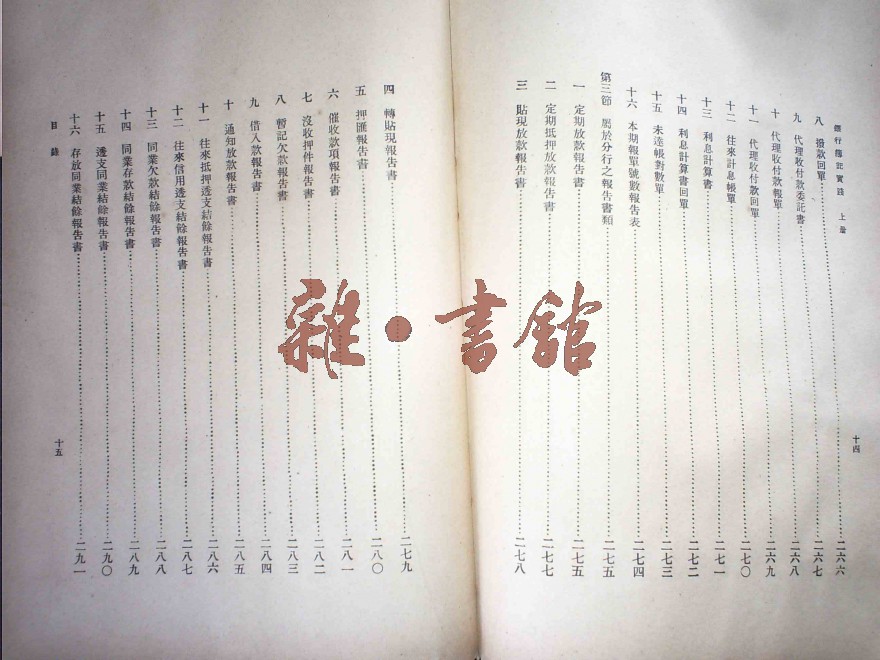 銀行簿記實踐 上册
十四
八 撥款回單……二六六
九 代理收付款委託書……二六七
十 代理收付款報單……二六八
十一 代理收付款回單……二六九
十二 往來計息帳單……二七〇
十三 利息計算書……二七一
十四 利息計算書回單……二七二
十五 未達帳對數單……二七三
十六 本期報單號數報告表……二七四
第三節 屬於分行之報告書類……二七五
一 定期放款報告書……二七五
二 定期抵押放款報告書……二七七
三 貼現放款報告書……二七八
四 轉貼現報告書……二七九
五 押匯報告書……二八〇
六 催收款項報告書……二八一
七 沒收押件報告書……二八二
八 暫記欠款報告書……二八三
九 借入款報告書……二八四
十 通知放款報告書……二八五
十一 往來抵押透支結餘報告書……二八六
十二 往來信用透支結餘報告書……二八七
十三 同業欠款結餘報告書……二八八
十四 同業存款結餘報告書……二八九
十五 透支同業結餘報告書……二九〇
十六 存放同業結餘報告書……二九一
目錄
十五
雜·書館